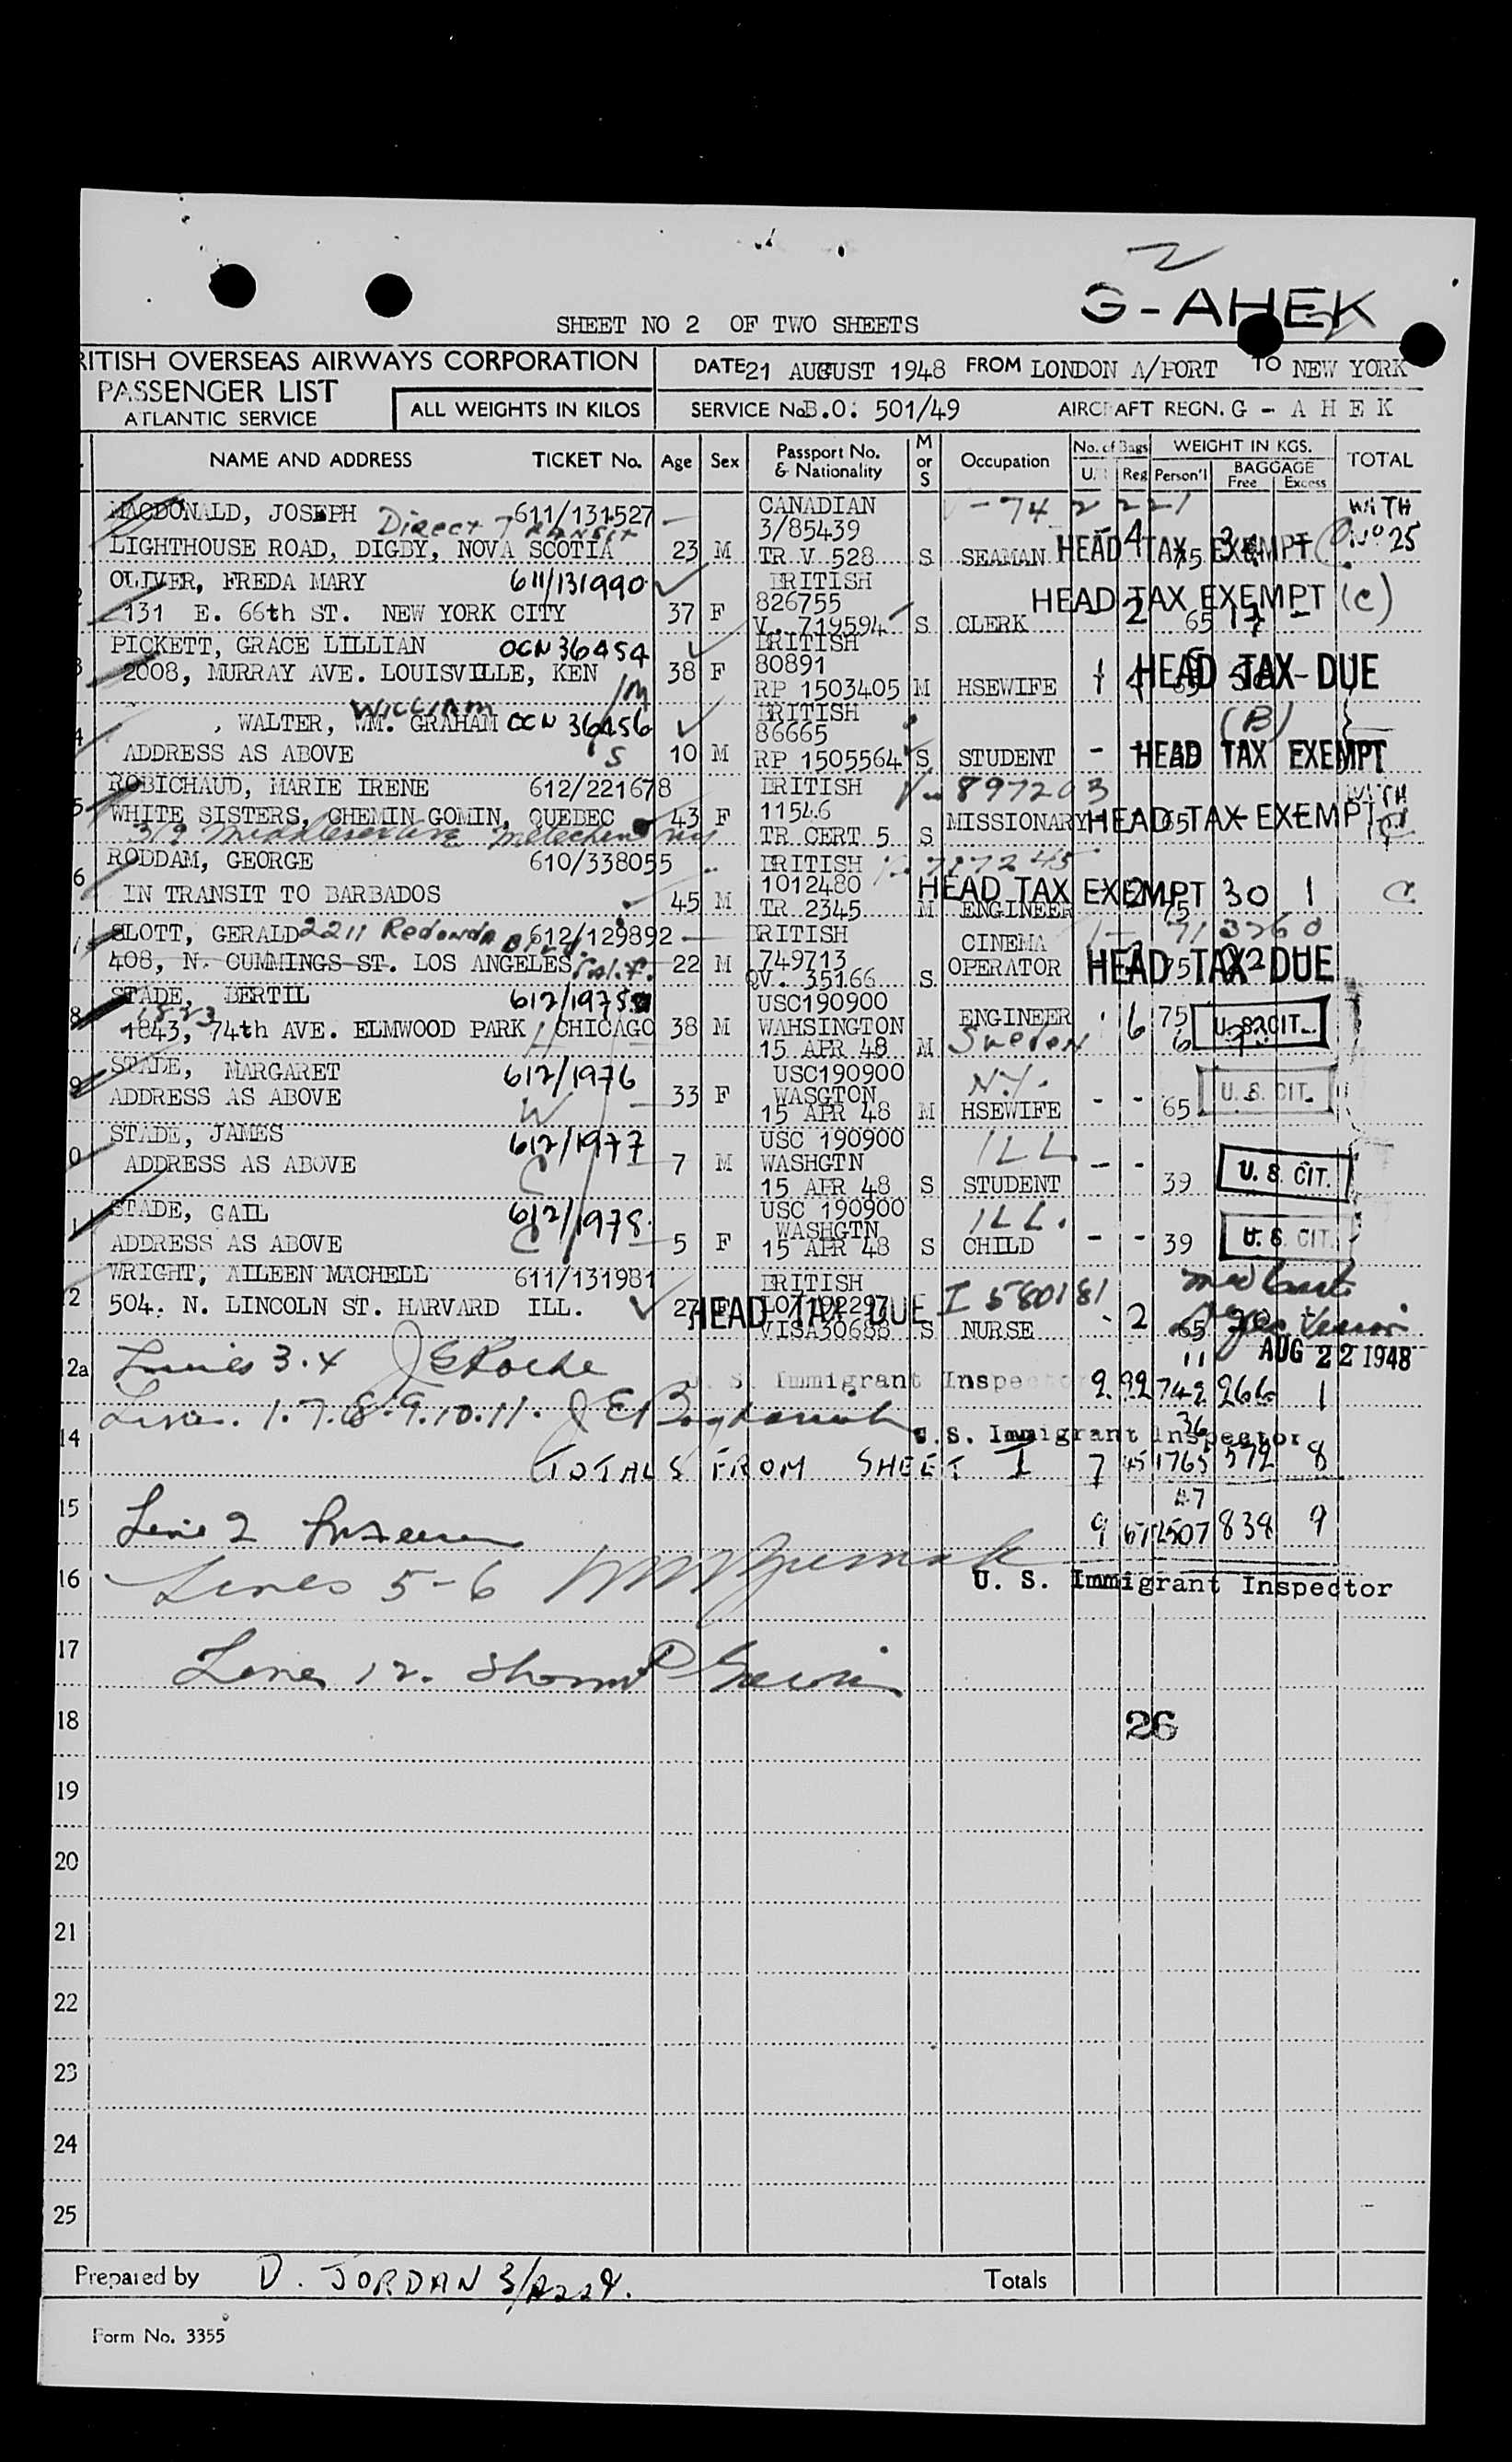 2
G-AHEK
SHEET NO 2 OF TWO SHEETS
RITISH OVERSEAS AIRWAYS CORPORATION
PASSENGER LIST
ATLANTIC SERVICE
ALL WEIGHTS IN KILOS
DATE 21 AUGUST 1948 FROM LONDON A/PORT TO NEW YORK
SERVICE No. B.O: 501/49 AIRCRAFT REGN. G - A H E K
NAME AND ADDRESS TICKET No. Age Sex Passport No. & Nationality M or S Occupation No. of Bags U. Reg Person'l WEIGHT IN KGS. BAGGAGE Free Excess TOTAL
MACDONALD, JOSEPH 611/131527 CANADIAN WITH
Direct Transit 3/85439 No 25
LIGHTHOUSE ROAD, DIGBY, NOVA SCOTIA 23 M TR V 528 S SEAMAN HEAD TAX EXEMPT
OLIVER, FREDA MARY 611/131990 BRITISH
826755 HEAD TAX EXEMPT (C)
131 E. 66th ST. NEW YORK CITY 37 F V. 719594 S CLERK - 2 65 17 -
PICKETT, GRACE LILLIAN OCN 36454 BRITISH
80891
2008, MURRAY AVE. LOUISVILLE, KEN 38 F RP 1503405 M HSEWIFE 1 HEAD TAX DUE
WILLIAM
, WALTER, WM. GRAHAM OCN 36456 BRITISH (B)
86665
ADDRESS AS ABOVE S 10 M RP 1505564 S STUDENT - HEAD TAX EXEMPT
5 ROBICHAUD, MARIE IRENE 612/221678 BRITISH V- 897203
WHITE SISTERS, CHEMIN GOMIN, QUEBEC 43 F 11546 MISSIONARY HEAD TAX EXEMPT
319 Middlesex Ave Metuchen NJ TR CERT 5 S
6 RODDAM, GEORGE 610/338055 BRITISH
1012480 HEAD TAX EXEMPT 30 1 C
IN TRANSIT TO BARBADOS 45 M TR 2345 M ENGINEER
SLOTT, GERALD 2211 Redondo Blvd 612/129892 BRITISH CINEMA
408, N. CUMMINGS ST. LOS ANGELES Calif. 22 M 749713 OPERATOR HEAD TAX DUE
QV. 35166 S
8 STADE, BERTIL 612/1975 USC190900
1823
1843, 74th AVE. ELMWOOD PARK, CHICAGO 38 M WAHSINGTON ENGINEER 6 75 U.S. CIT.
15 APR 48 M Sweden
9 STADE, MARGARET 612/1976 USC190900 N.Y.
ADDRESS AS ABOVE W 33 F WASGTON
15 APR 48 M HSEWIFE - - 65 U.S. CIT.
0 STADE, JAMES 612/1977 USC 190900 ILL
ADDRESS AS ABOVE 7 M WASHGTN
15 APR 48 S STUDENT - - 39 U.S. CIT.
1 STADE, GAIL 612/1978 USC 190900 ILL.
WASHGTN
ADDRESS AS ABOVE 5 F 15 APR 48 S CHILD - - 39 U.S. CIT.
2 WRIGHT, AILEEN MACHELL 611/131981 BRITISH I 580181
504. N. LINCOLN ST. HARVARD ILL. 27 HEAD TAX DUE
VISA30688 S NURSE - 2 65
AUG 22 1948
2a Lines 3.4 J E Roche
U. S. Immigrant Inspector 2 22 742 266 1
Lines. 1.7.8.9.10.11.
14 U.S. Immigrant Inspector
TOTALS FROM SHEET I 7 45 1765 572 8
15 Line 2 9 67 2507 838 9
16 Lines 5-6 U. S. Immigrant Inspector
17 Line 12.
18 26
19
20
21
22
23
24
25
Prepared by D. JORDAN Totals
Form No. 3355